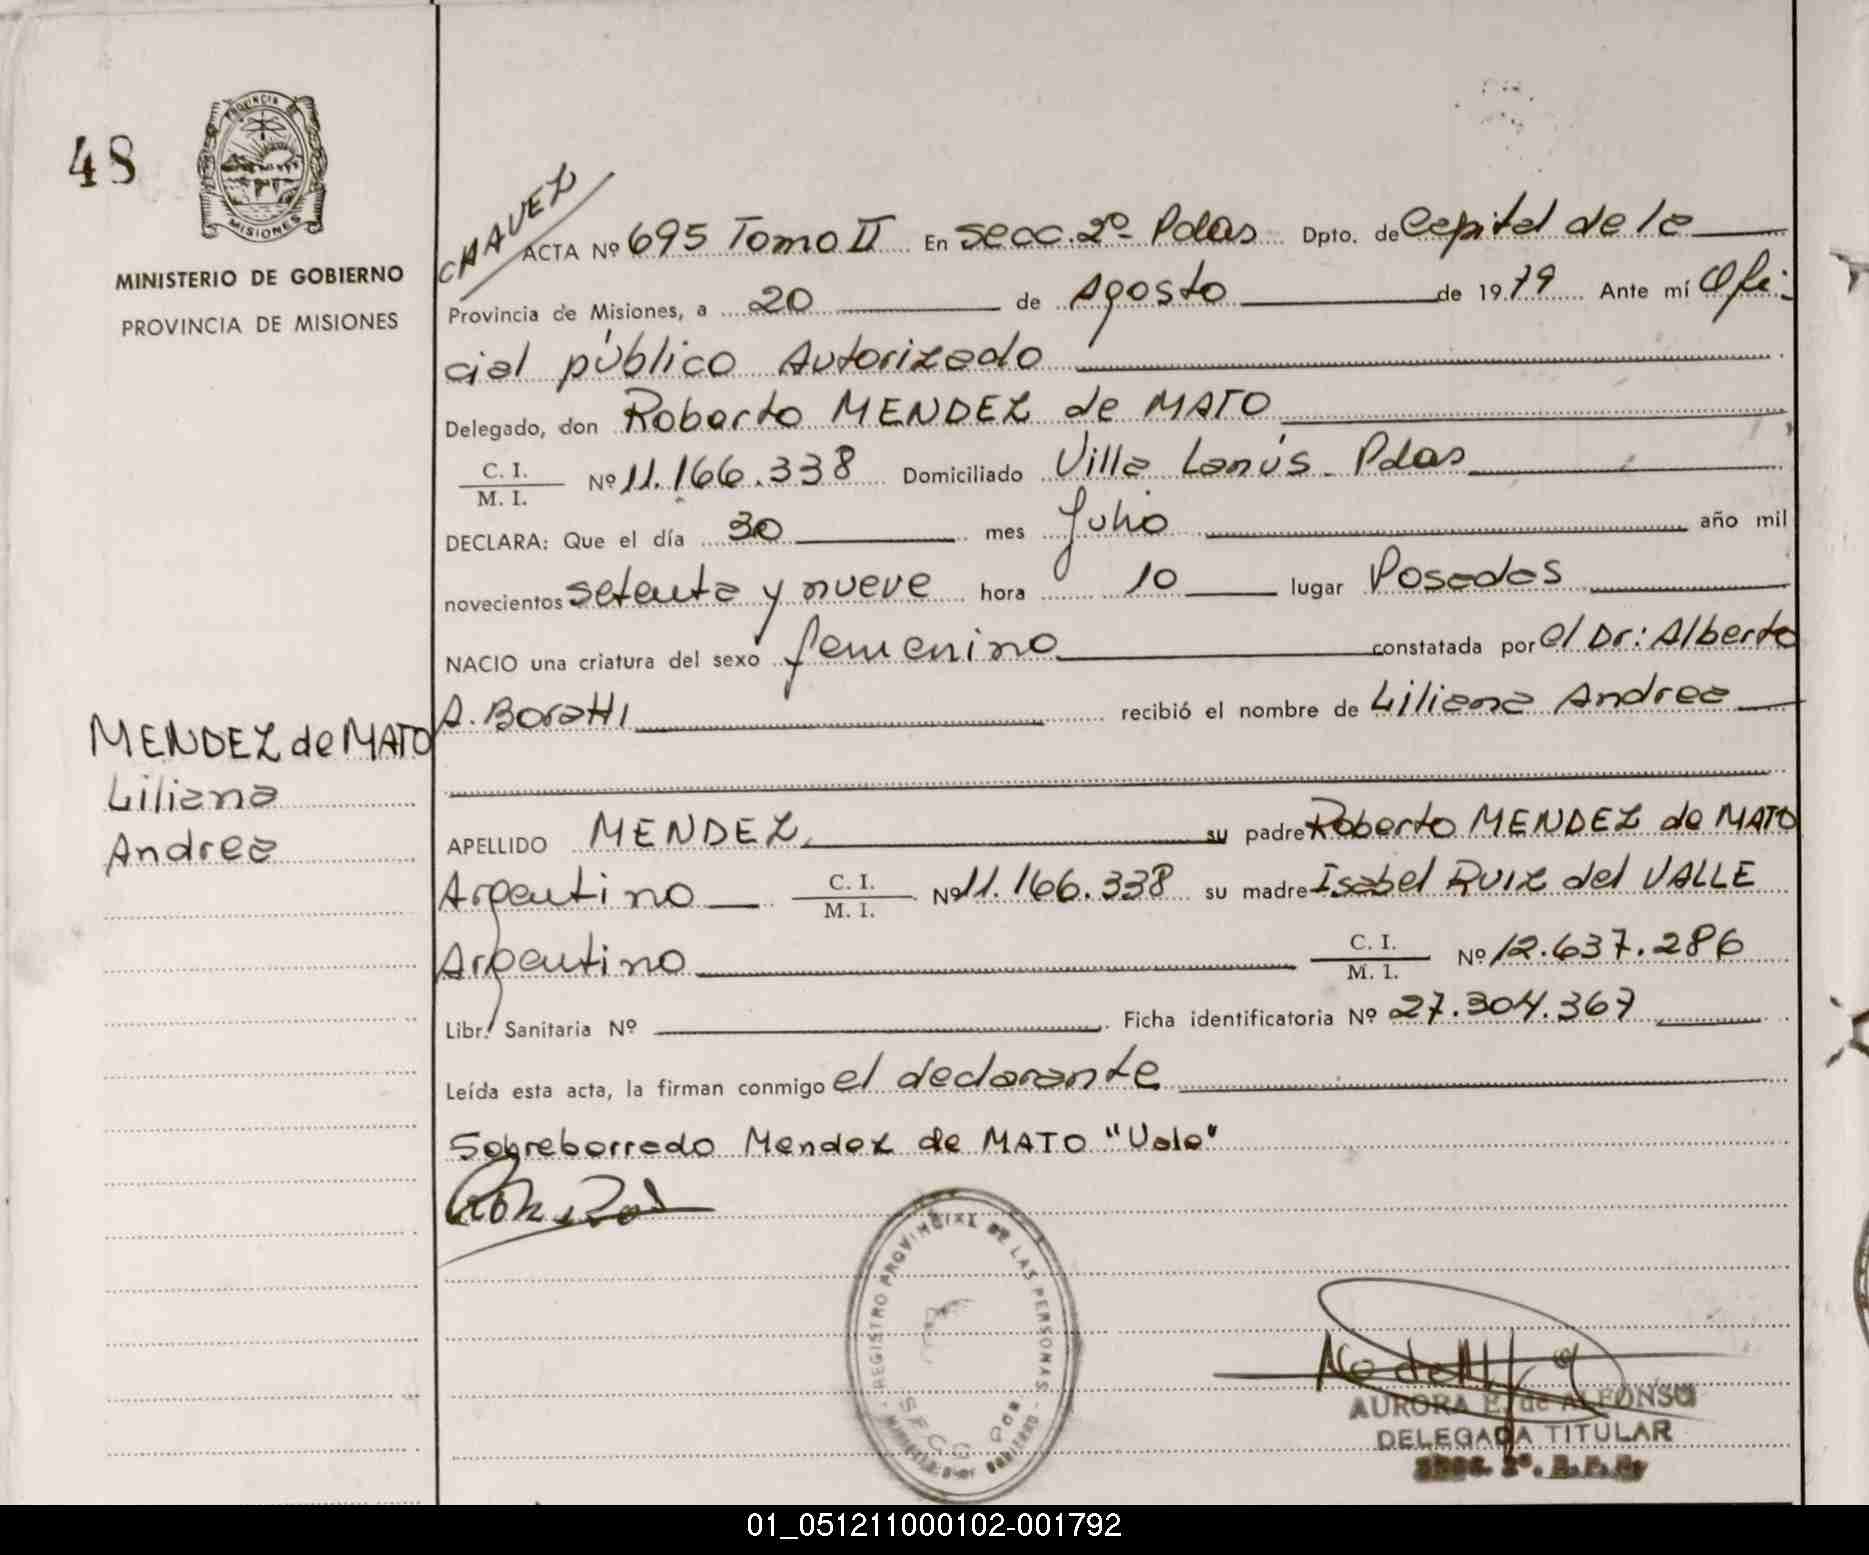 48
PROVINCIA DE
MISIONES
MINISTERIO DE GOBIERNO
PROVINCIA DE MISIONES
MENDEZ de MATO
Liliana
Andrea
CHAVEZ
ACTA Nº 695 Tomo II En Secc. 2º Pdas Dpto. de Capital de la
Provincia de Misiones, a 20 de Agosto de 1979 Ante mí Ofi-
cial público Autorizado
Delegado, don Roberto MENDEZ de MATO
C. I.
M. I. Nº 11.166.338 Domiciliado Villa Lanús - Pdas
DECLARA: Que el día 30 mes Julio año mil
novecientos setenta y nueve hora 10 lugar Posadas
NACIO una criatura del sexo femenino constatada por el Dr: Alberto
A. Boratti recibió el nombre de Liliana Andrea
APELLIDO MENDEZ su padre Roberto MENDEZ de MATO
Argentino C. I.
M. I. Nº 11.166.338 su madre Isabel RUIZ del VALLE
Argentino C. I.
M. I. Nº 12.637.286
Libr. Sanitaria Nº Ficha identificatoria Nº 27.304.367
Leída esta acta, la firman conmigo el declarante
Sobreborrado Mendez de MATO "Vale"
REGISTRO PROVINCIAL DE LAS PERSONAS
AURORA E. de ALFONSO
DELEGADA TITULAR
Secc. 2º. R. P. P.
01_051211000102-001792